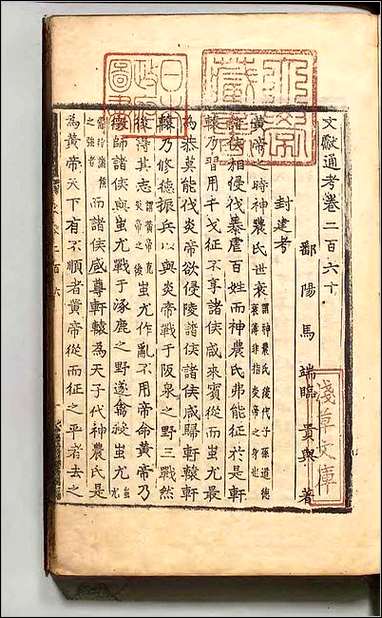 文獻通考卷二百六十
鄱陽馬端臨貴與著
封建考
黃帝之時神農氏世衰謂神農氏後代子孫道德衰薄非指炎帝之身也
諸侯相侵伐暴虐百姓而神農氏弗能征於是軒
轅乃習用干戈征不享諸侯咸來賓從而蚩尤最
為恭莫能伐炎帝欲侵陵諸侯諸侯咸歸軒轅軒
轅乃修德振兵以與炎帝戰于阪泉之野三戰然
後得其志蚩尤作亂不用帝命黃帝乃
徵師諸侯與蚩尤戰于涿鹿之野遂禽殺蚩尤
之強者而諸侯咸尊軒轅為天子代神農氏是
為黃帝天下有不順者黃帝從而征之平者去之
淺草文庫